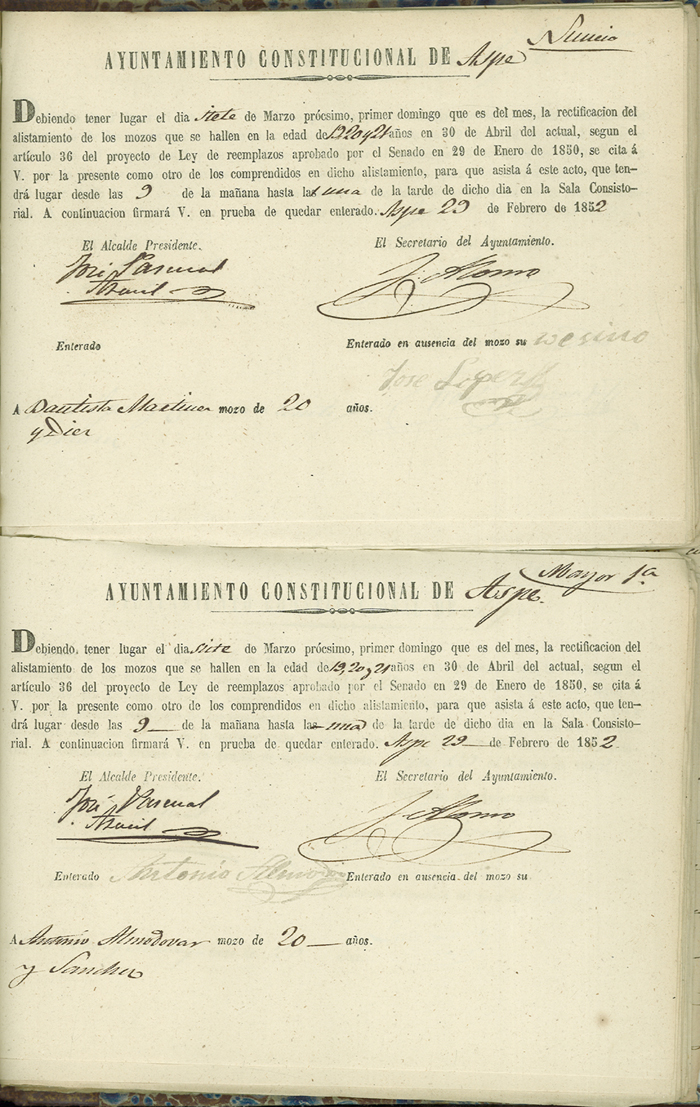 Nuncio
AYUNTAMIENTO CONSTITUCIONAL DE Aspe
Debiendo tener lugar el dia siete de Marzo prócsimo, primer domingo que es del mes, la rectificacion del
alistamiento de los mozos que se hallen en la edad de 19 20 y 21 años en 30 de Abril del actual, segun el
artículo 36 del proyecto de Ley de reemplazos aprobado por el Senado en 29 de Enero de 1850, se cita á
V. por la presente como otro de los comprendidos en dicho alistamiento, para que asista á este acto, que ten-
drá lugar desde las 9 de la mañana hasta la una de la tarde de dicho dia en la Sala Consisto-
rial. A continuacion firmará V. en prueba de quedar enterado. Aspe 29 de Febrero de 1852
El Alcalde Presidente. El Secretario del Ayuntamiento.
José Pascual J. Alonso
Enterado Enterado en ausencia del mozo su vecino
Jose Lopez
A Bautista Martinez mozo de 20 años.
y Dier
Mayor 1ª
AYUNTAMIENTO CONSTITUCIONAL DE Aspe.
Debiendo tener lugar el dia siete de Marzo prócsimo, primer domingo que es del mes, la rectificacion del
alistamiento de los mozos que se hallen en la edad de 19, 20 y 21 años en 30 de Abril del actual, segun el
artículo 36 del proyecto de Ley de reemplazos aprobado por el Senado en 29 de Enero de 1850, se cita á
V. por la presente como otro de los comprendidos en dicho alistamiento, para que asista á este acto, que ten-
drá lugar desde las 9 de la mañana hasta la una de la tarde de dicho dia en la Sala Consisto-
rial. A continuacion firmará V. en prueba de quedar enterado. Aspe 29 de Febrero de 1852
El Alcalde Presidente. El Secretario del Ayuntamiento.
José Pascual J. Alonso
Enterado Antonio Almodovar Enterado en ausencia del mozo su
A Antonio Almodovar mozo de 20 años.
y Sanchez